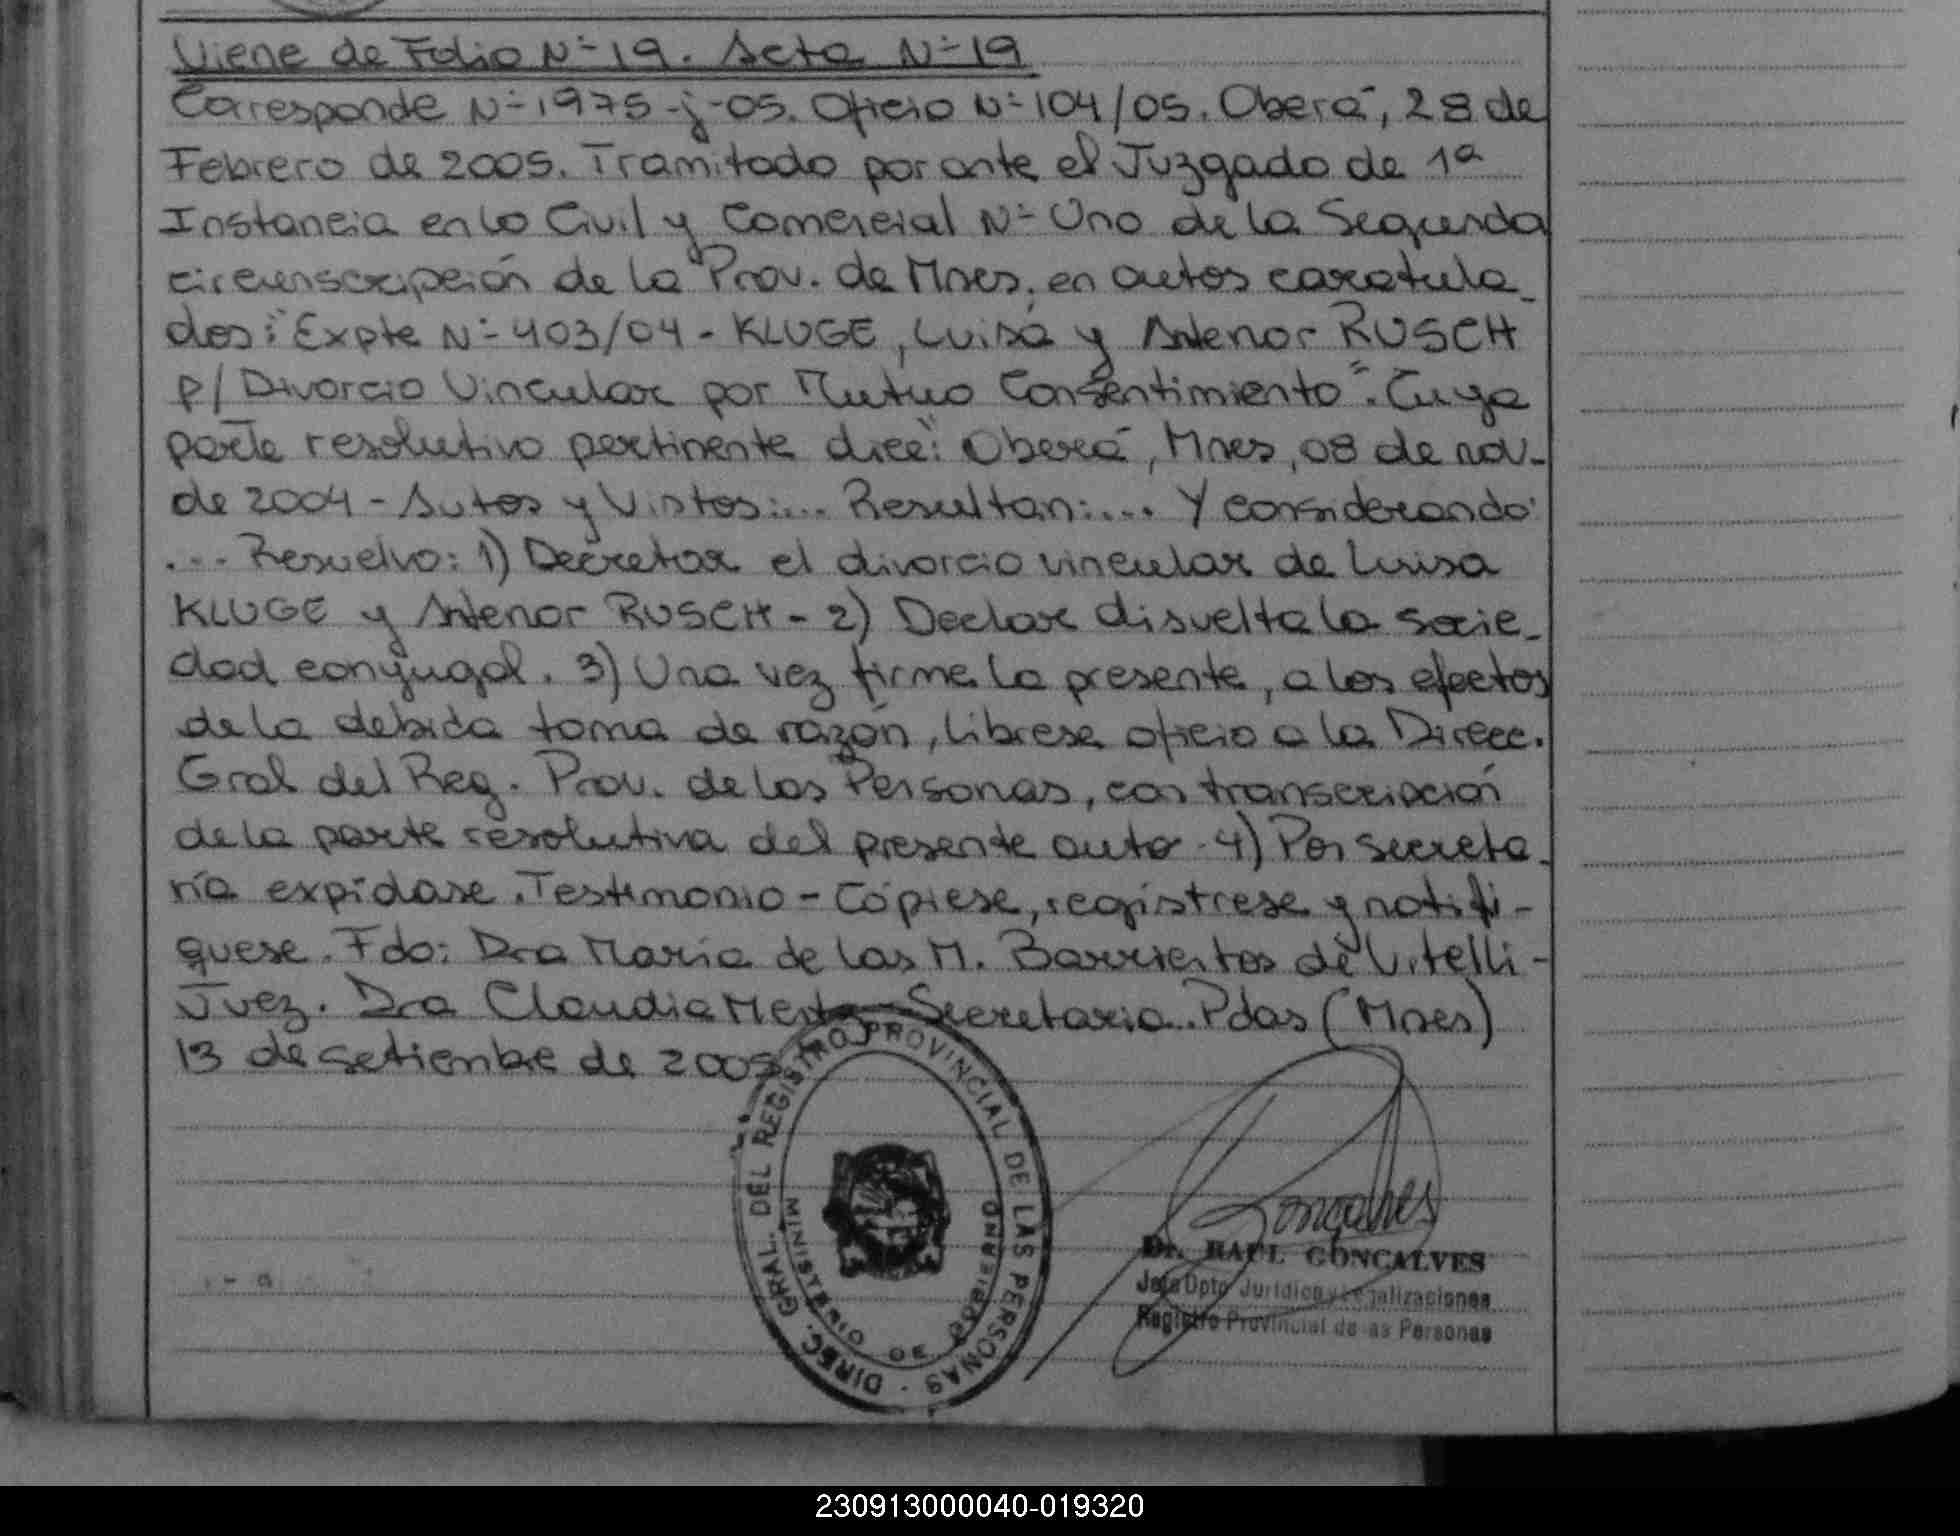 Viene de Folio Nº 19. Acta Nº 19
Corresponde Nº 1975-j-05. Oficio Nº 104/05. Oberá, 28 de
Febrero de 2005. Tramitado por ante el Juzgado de 1ª
Instancia en lo Civil y Comercial Nº Uno de la Segunda
circunscripción de la Prov. de Mnes, en autos caratula-
dos: "Expte Nº 403/04 - KLUGE, Luisa y Antenor RUSCH
p/ Divorcio Vincular por Mutuo Consentimiento". Cuya
parte resolutiva pertinente dice: "Oberá, Mnes, 08 de nov.
de 2004 - Autos y Vistos:... Resultan:.... Y considerando:
... Resuelvo: 1) Decretar el divorcio vincular de Luisa
KLUGE y Antenor RUSCH - 2) Declar disuelta la socie-
dad conyugal. 3) Una vez firme la presente, a los efectos
de la debida toma de razón, librese oficio a la Direcc.
Gral del Reg. Prov. de las Personas, con transcripción
de la parte resolutiva del presente auto. 4) Por secreta-
ría expídase Testimonio - Cópiese, regístrese y notifi-
quese. Fdo: Dra María de las M. Barrientos de Vitelli -
Juez. Dra Claudia - Secretaria. Pdas (Mnes)
13 de setiembre de 2005
DIREC. GRAL. DEL REGISTRO PROVINCIAL DE LAS PERSONAS
MINISTERIO DE GOBIERNO
Goncalves
Dr. RAUL GONCALVES
Jefe Dpto Jurídico y Legalizaciones
Registro Provincial de las Personas
230913000040-019320